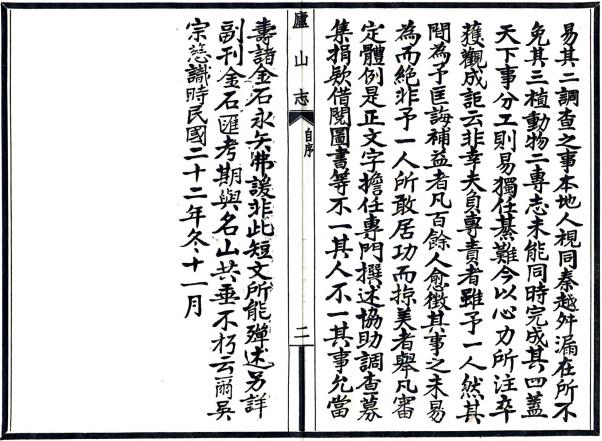 易其二調查之事本地人視同秦越舛漏在所不
免其三植動物二專志未能同時完成其四蓋
天下事分工則易獨任綦難今以心力所注卒
獲觀成詎云非幸夫負專責者雖予一人然其
間為予匡誨補益者凡百餘人愈徵其事之未易
為而絕非予一人所敢居功而掠美者舉凡審
定體例是正文字擔任專門撰述協助調查募
集捐款借閱圖書等不一其人不一其事允當
廬山志
自序
二
壽諸金石永矢弗諼非此短文所能殫述另詳
副刊金石匯考期與名山共垂不朽云爾吳
宗慈識時民國二十二年冬十一月